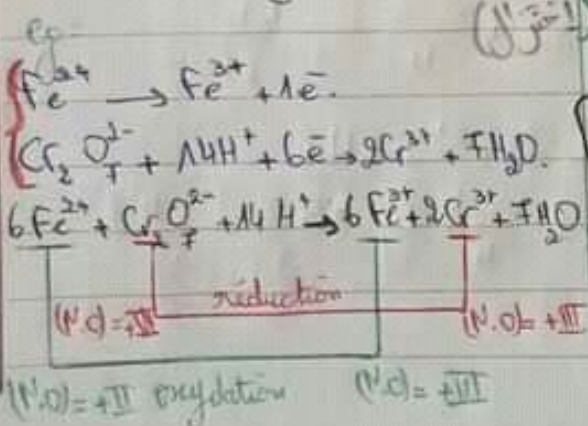 eg
(اختزال)
Fe²⁺ → Fe³⁺ + 1e⁻.
Cr₂O₇²⁻ + 14H⁺ + 6e⁻ → 2Cr³⁺ + 7H₂O.
6Fe²⁺ + Cr₂O₇²⁻ + 14H⁺ → 6Fe³⁺ + 2Cr³⁺ + 7H₂O
réduction
(N.O) = (N.O) = +III
(N.O) = +II oxydation (N.O) = +III